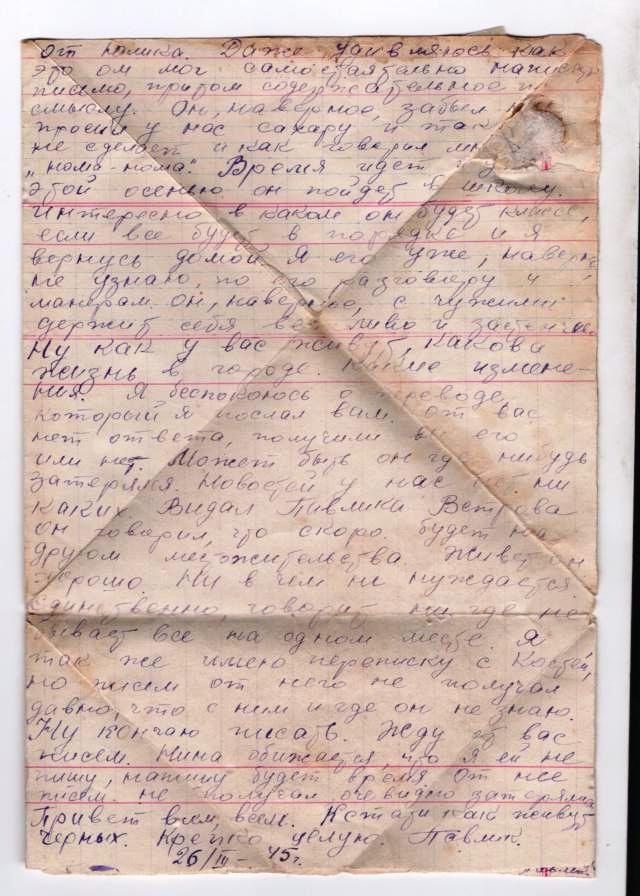 от Юлика. Даже удивляюсь как
это он мог самостоятельно написать
письмо, притом содержательное по
смыслу. Он, наверное, забыл как
просил у нас сахару и так
не сделает и как говорил
"нома-нома". Время идет
этой осенью он пойдет в школу.
Интересно в каком он будет классе,
если все будет в порядке и я
вернусь домой. Я его уже, наверно
не узнаю, по его разговору и
манерам. он, наверное, с чужими
держит себя вежливо и застенчиво
Ну как у вас живут, какова
жизнь в городе. Какие измене-
ния. Я беспокоюсь о переводе,
который я послал вам. от вас
нет ответа, получили вы его
или нет. Может быть он где нибудь
затерялся. Новостей у нас нет ни
каких. Видал Павлика
он говорил, что скоро будет на
другом местожительства. Живет он
хорошо. Ни в чем не нуждается.
единственно, говорит ни где не
бывает все на одном месте. Я
так же имею переписку с Костей,
но писем от него не получал
давно, что с ним и где он не знаю.
Ну кончаю писать. Жду от вас
писем. Нина обижается, что я ей не
пишу, напишу будет время от нее
писем не получал очевидно затерялись
Привет всем, всем. Кстати как живут
Черных. Крепко целую. Павлик.
26/III - 45г.